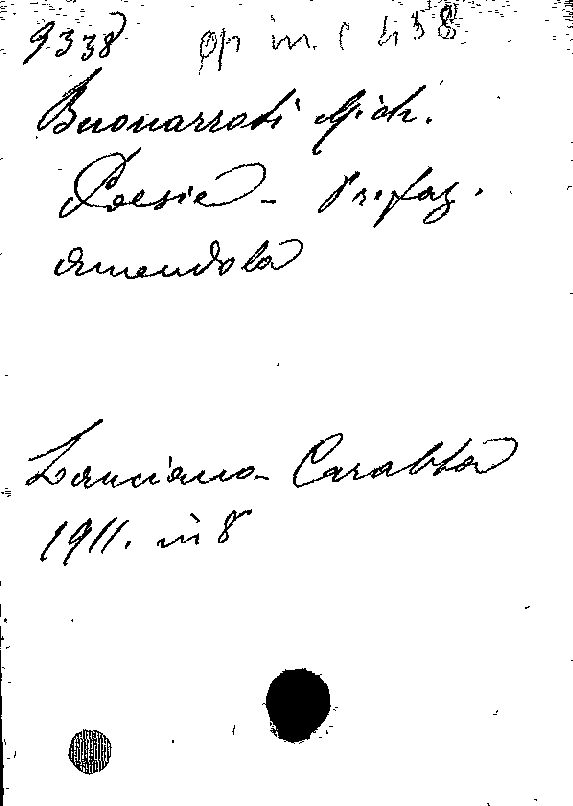 9338 op in. C 438
Buonarroti Mich.
Poesie - Prefaz.
Amendola
Lanciano - Carabba
1911. in 8